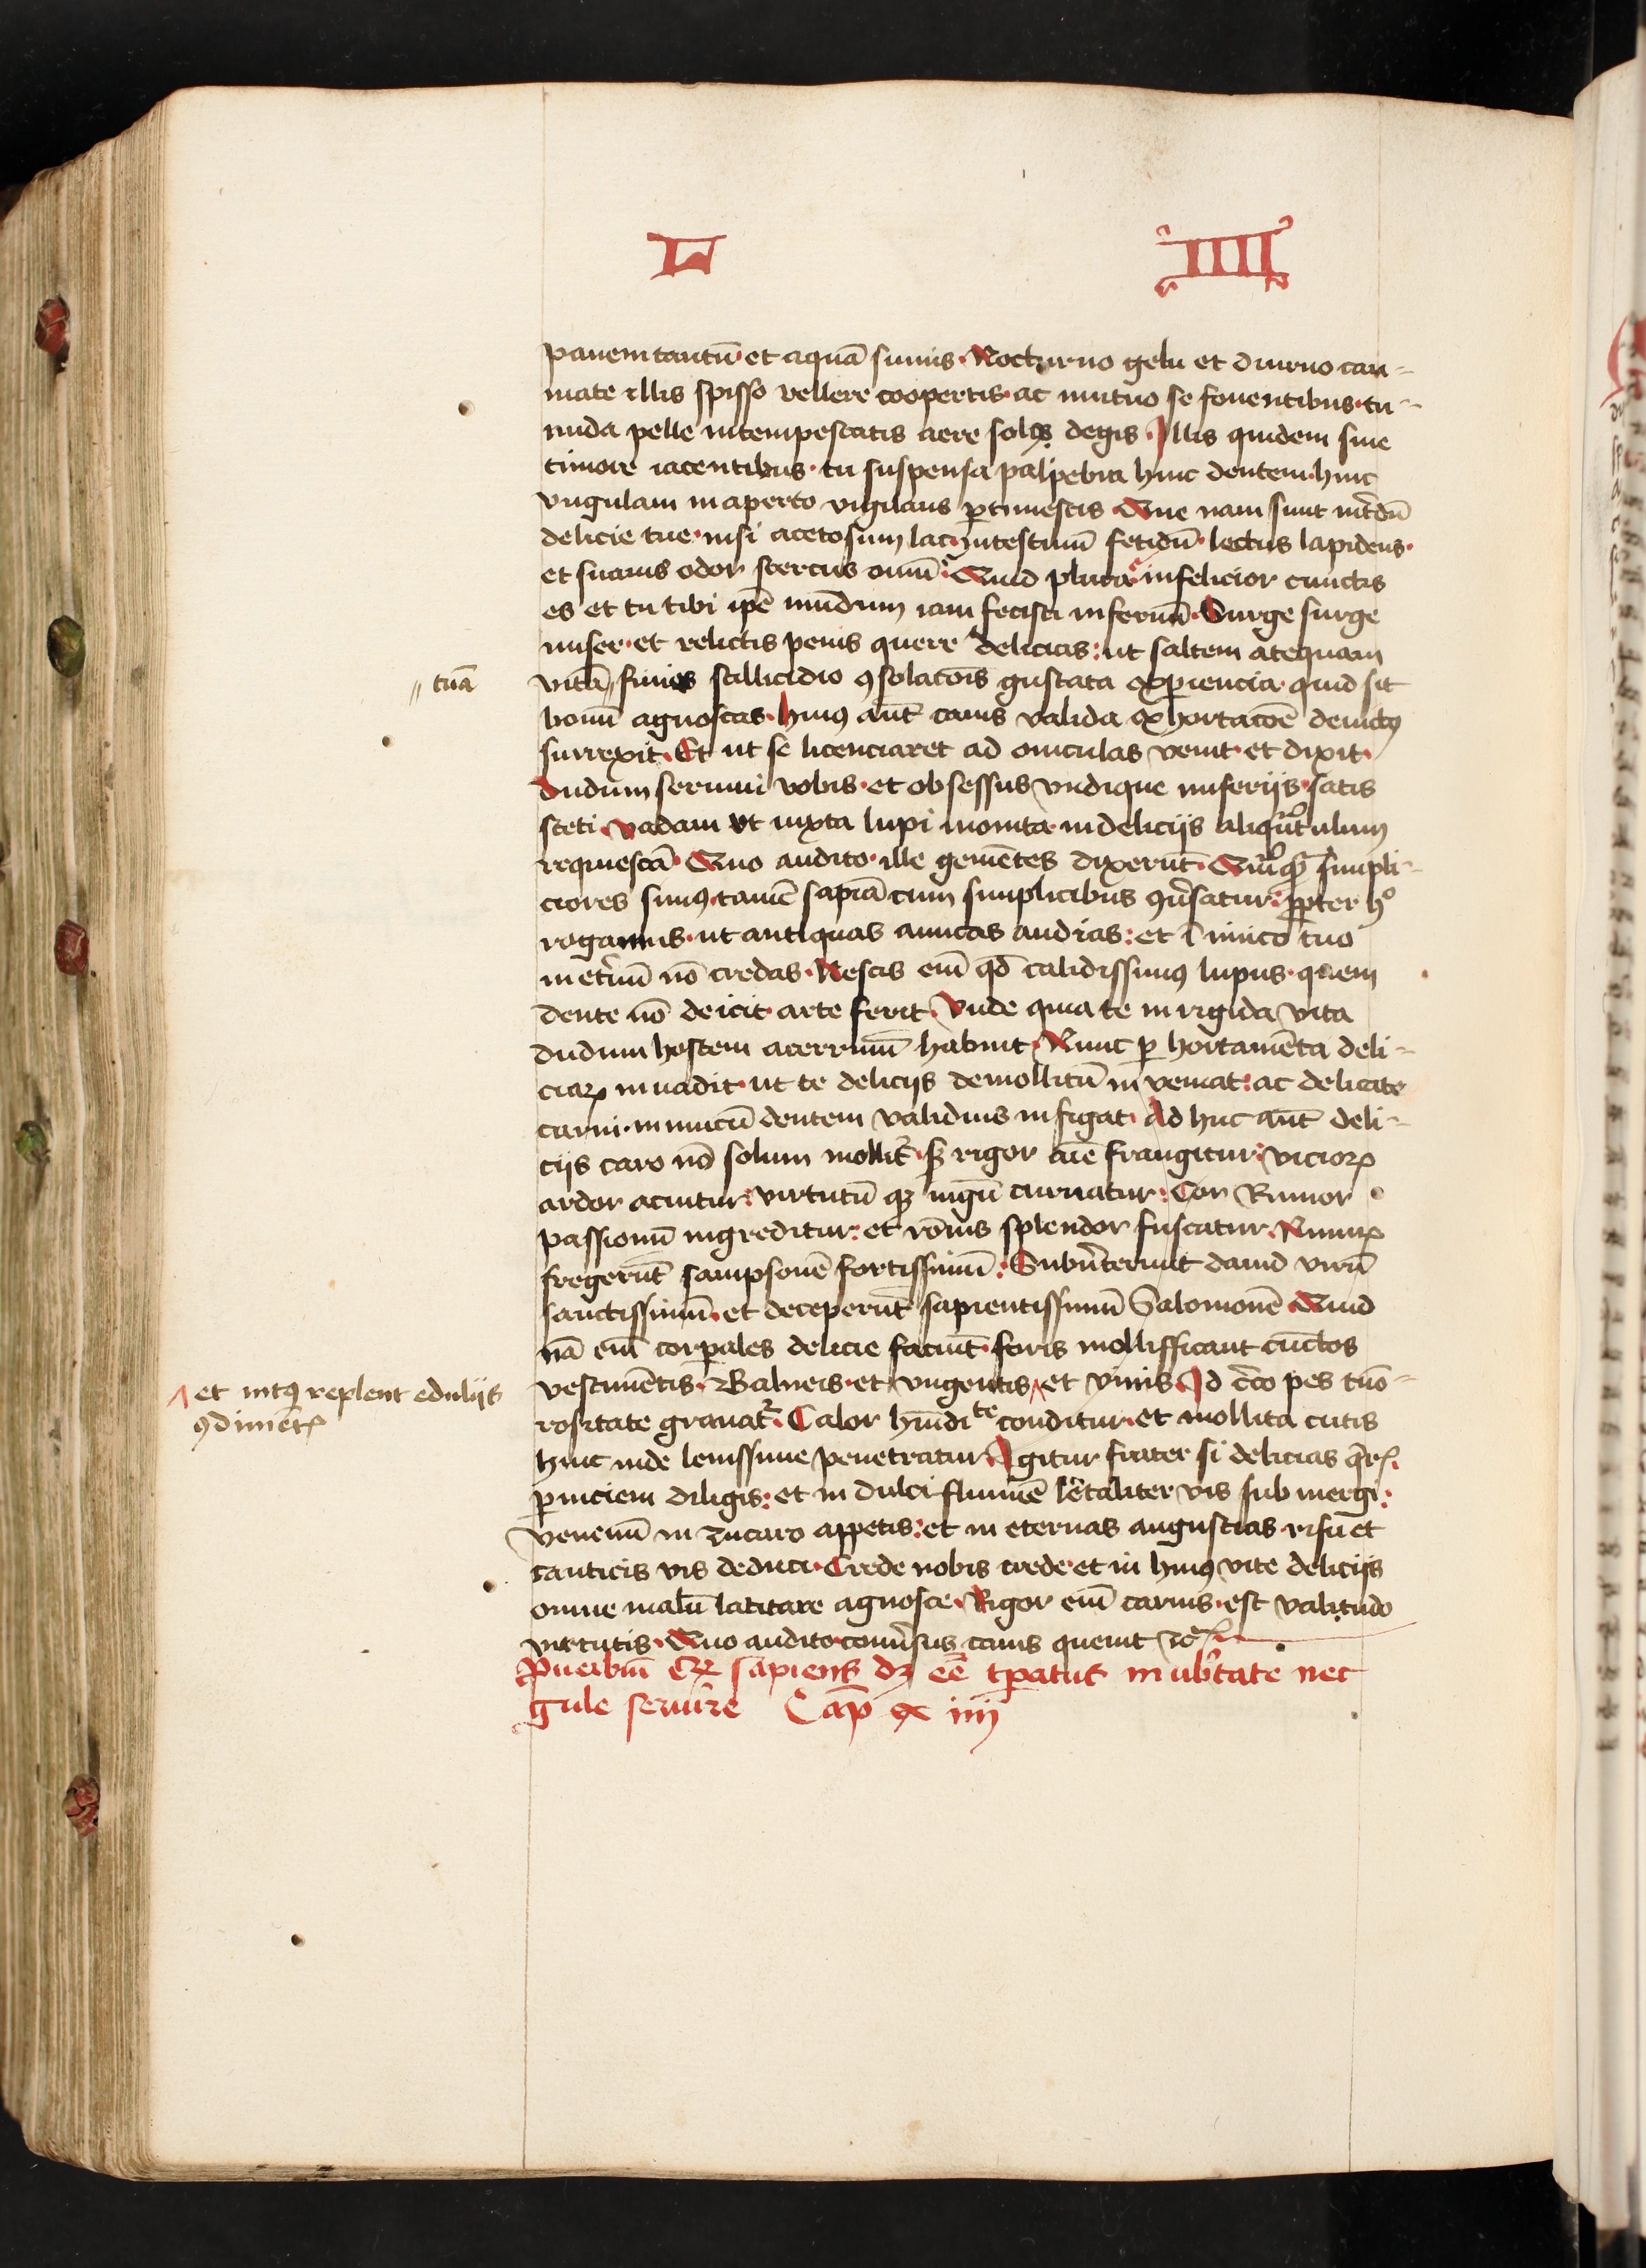 L IIII
panem tantū et aquā sumis. Nocturno gelu et diurno cau-
mate illis spisso vellere coopertis. ac mutuo se fouentibus. tu
nuda pelle intempestatis aere solꝰ degis. Illis quidem sine
timore iacentibus. tu suspensa palpebra hinc dentem. hinc
vngulam in aperto vigilans ꝑtimescis. Que nam sunt int̄dū
delicie tue. nisi acetosum lac. intestinū fetidū. lectus lapideus.
et suauis odor stercus ouiū. Quid plura. infelicior cunctis
es et tu tibi ipē mūdum iam fecisti infernū. Surge surge
miser. et relictis penis quere delicias: ut saltem atequam
tuā
vitā finies stillicidio ꝯsolacōis gustata exꝑiencia. quid sit
bonū agnoscas. Huiꝰ aūt canis valida exhortacōe deuictꝰ
surrexit. Et ut se licenciaret ad ouiculas venit. et dixit.
Dudum seruiui vobis. et obsessus vndique miserijs. satis
steti. Vadam vt iuxta lupi monita in delicijs aliqūtulum
requiescā. Quo audito. ille gemētes dixerūt. Quāꝗ simpli-
ciores simꝰ. tamē sapīa cum simplicibus ꝯūsatur: ꝓpter hº
rogamus. ut antiquas amicas audias: et ī imico tuo
in etnū nō credas. Nescis eīm qd̄ calidissimꝰ lupus. quem
dente nō deicit. arte ferit. Vnde quia te in rigida vita
dudum hostem acerrimū habuit. Nunc ꝑ hortamēta deli-
ciaꝝ inuadit. ut te delicijs demollitū inveniat: ac delicate
carni. inimicū dentem validius infigat. Ad huc aūt deli-
cijs caro nō solum mollit̄. sꝫ rigor aīe frangitur: vicioꝝ
ardor acuitur: virtutū qꝫ ingū curuatur: Cor Rumor
passionū ingreditur: et rōnis splendor fuscatur. Nimiꝝ
fregerūt sampsonē fortissimū: Subūterunt dauid virū
sanctissimū. et deceperūt sapientissimū Salomonē. Quid
nā eīm corꝑales delicie faciūt. foris mollifficant cūctos
vestimētis. Balneis. et vngentis ⋀ et vinis. Id c̄co pes tuō-
⋀ et intꝰ replent edulijs
ꝯdimētꝭ
rositate grauat̄. Calor hūdite conditur. et mollita cutis
hinc inde lenissime penetratur. Igitur frater si delicias q̄rꝭ.
ꝑniciem diligis: et in dulci flumīe letaliter vis sub mergi:
venenū in zucaro appetis: et in eternas angustias risu et
canticis vis deduci. Crede nobis crede. et in huiꝰ vite delicijs
omne malū latitare agnosce. Rigor eīm carnis. est valitudo
virtutis. Quo audito conūsus canis queuit ⁊cꝭ
Puerbiū q̄ sapiens dꝫ eē tꝑatus in ub̄tate nec
gule seruire Cap̄ x iiij